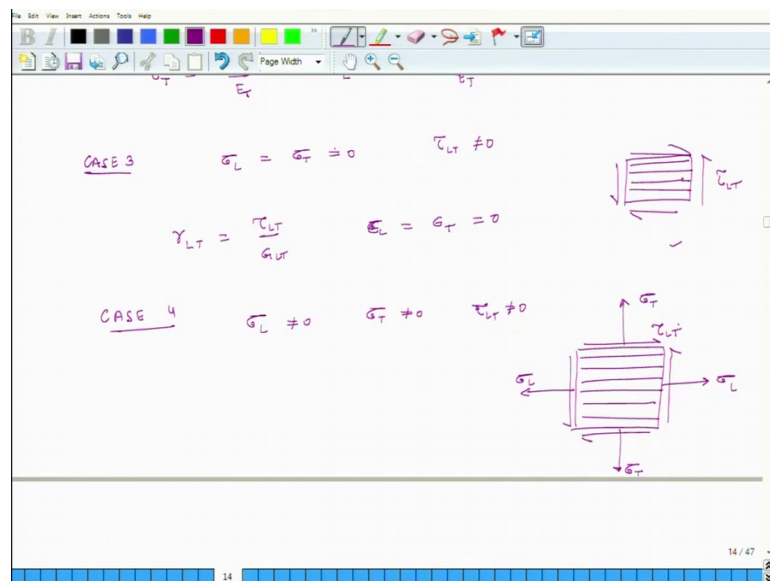 File Edit View Insert Actions Tools Help
B I
Page Width
E_T E_T
CASE 3 σ_L = σ_T = 0 τ_LT ≠ 0
τ_LT
γ_LT = τ_LT / G_LT ε_L = σ_T = 0
CASE 4 σ_L ≠ 0 σ_T ≠ 0 τ_LT ≠ 0
σ_T
τ_LT
σ_L σ_L
σ_T
14 / 47
14